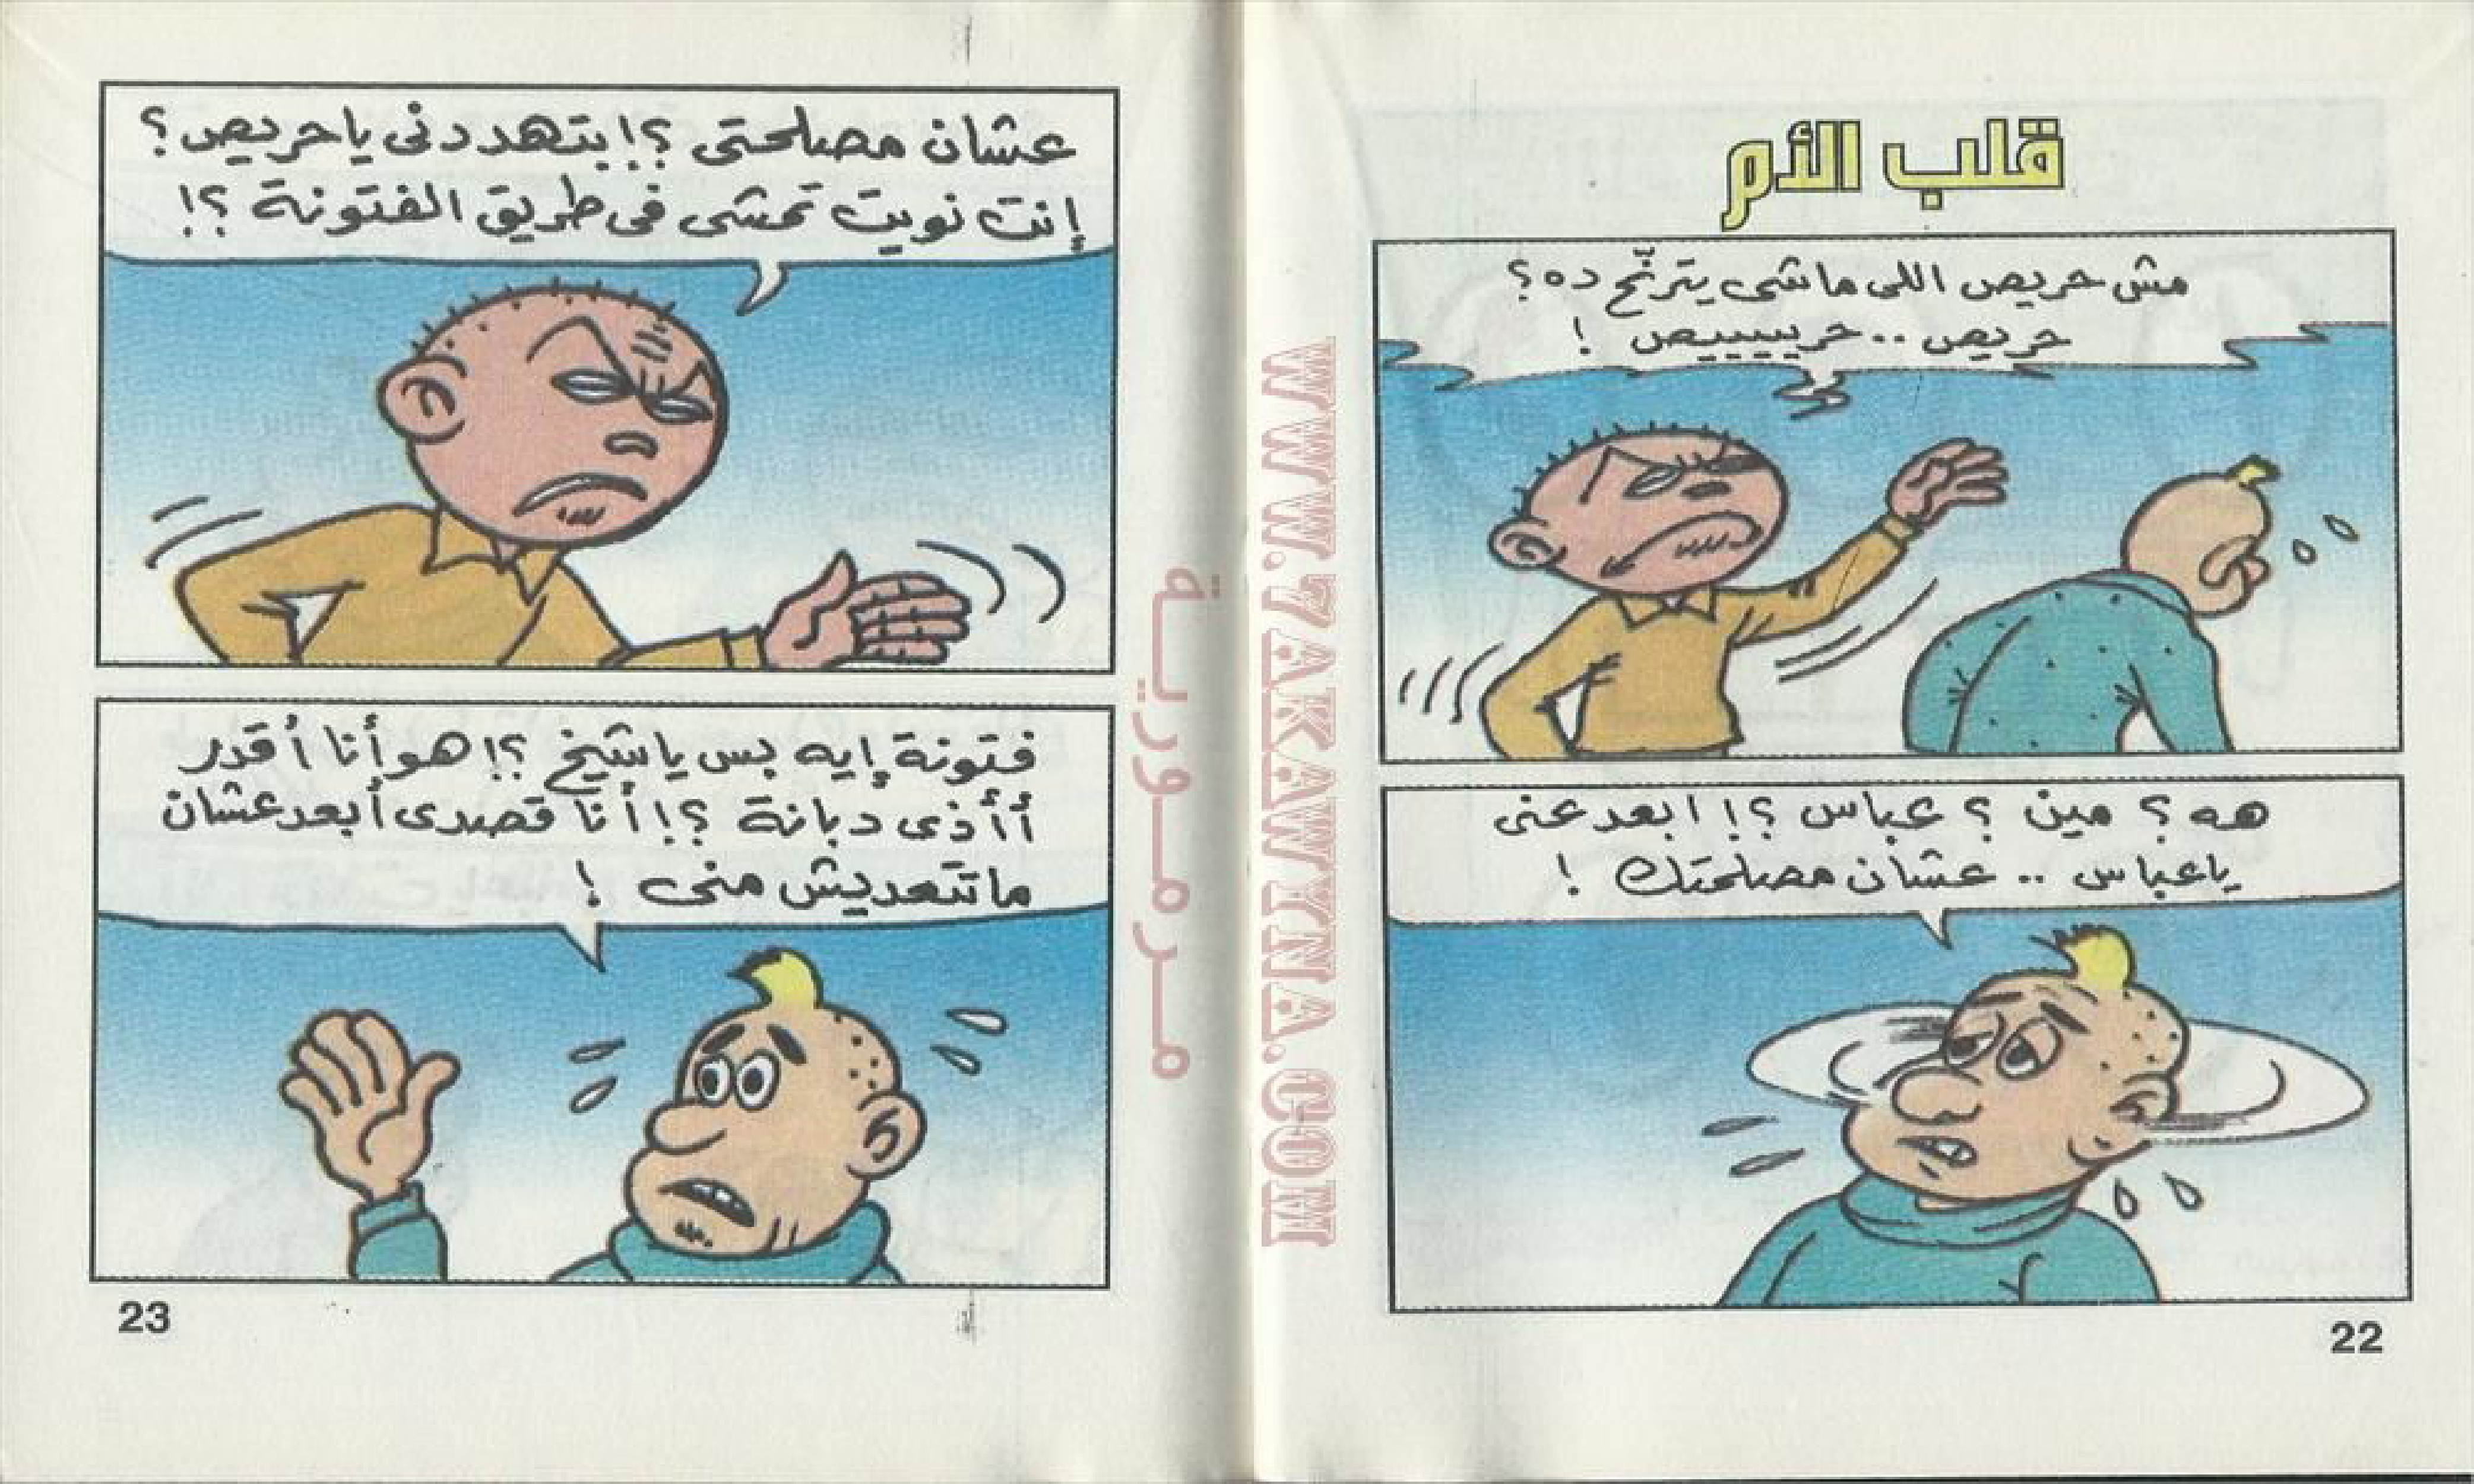 قلب الأم
مش حريص اللى ماشى يترنّح ده؟
حريص .. حريييييص !
هه ؟ مين ؟ عباس ؟! ابعد عنى
ياعباس .. عشان مصلحتك !
22
عشان مصلحتى ؟! بتهددنى ياحريص؟
إنت نويت تمشى فى طريق الفتونة ؟!
فتونة إيه بس ياشيخ ؟! هو أنا أقدر
أأذى دبانة ؟! أنا قصدى أبعد عشان
ماتتعديش منى !
23
مرمورية
WWW.7AKAWYNA.COM